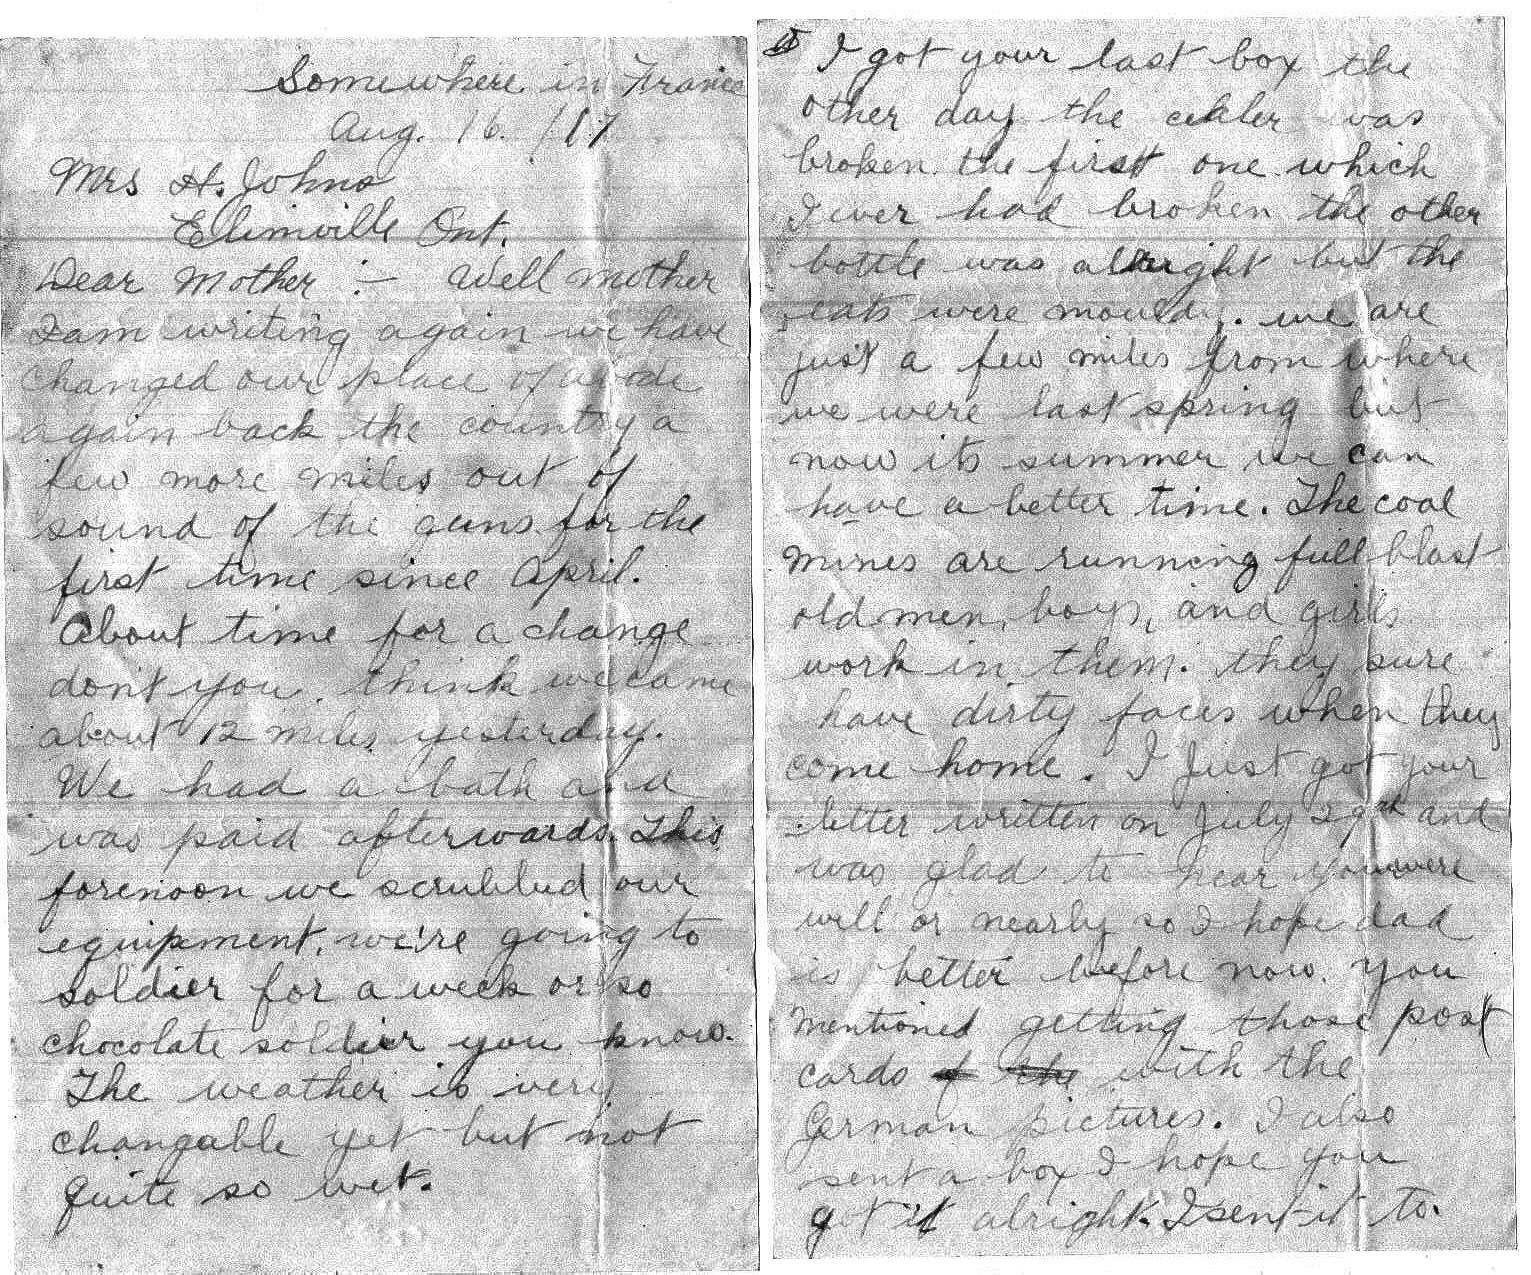 Somewhere in France
Aug. 16. /17
Mrs H. Johns
Elimville Ont.
Dear Mother :- Well mother
I am writing again we have
changed our place of abode
again back the country a
few more miles out of
sound of the guns for the
first time since April.
About time for a change
dont you think we came
about 12 miles yesterday.
We had a bath and
was paid afterwards. This
forenoon we scrubbed our
equipment, we're going to
soldier for a week or so
chocolate soldier you know.
The weather is very
changable yet but not
quite so wet.
I got your last box the
other day the was
broken the first one which
I ever had broken the other
bottle was alright but the
eats were mouldy. we are
just a few miles from where
we were last spring but
now its summer we can
have a better time. The coal
mines are running full blast
old men, boys, and girls
work in them. they sure
have dirty faces when they
come home. I just got your
letter written on July 29th and
was glad to hear you were
well or nearly so I hope dad
is better before now. you
mentioned getting those post
cards of the with the
German pictures. I also
sent a box I hope you
got it alright. I sent it to.